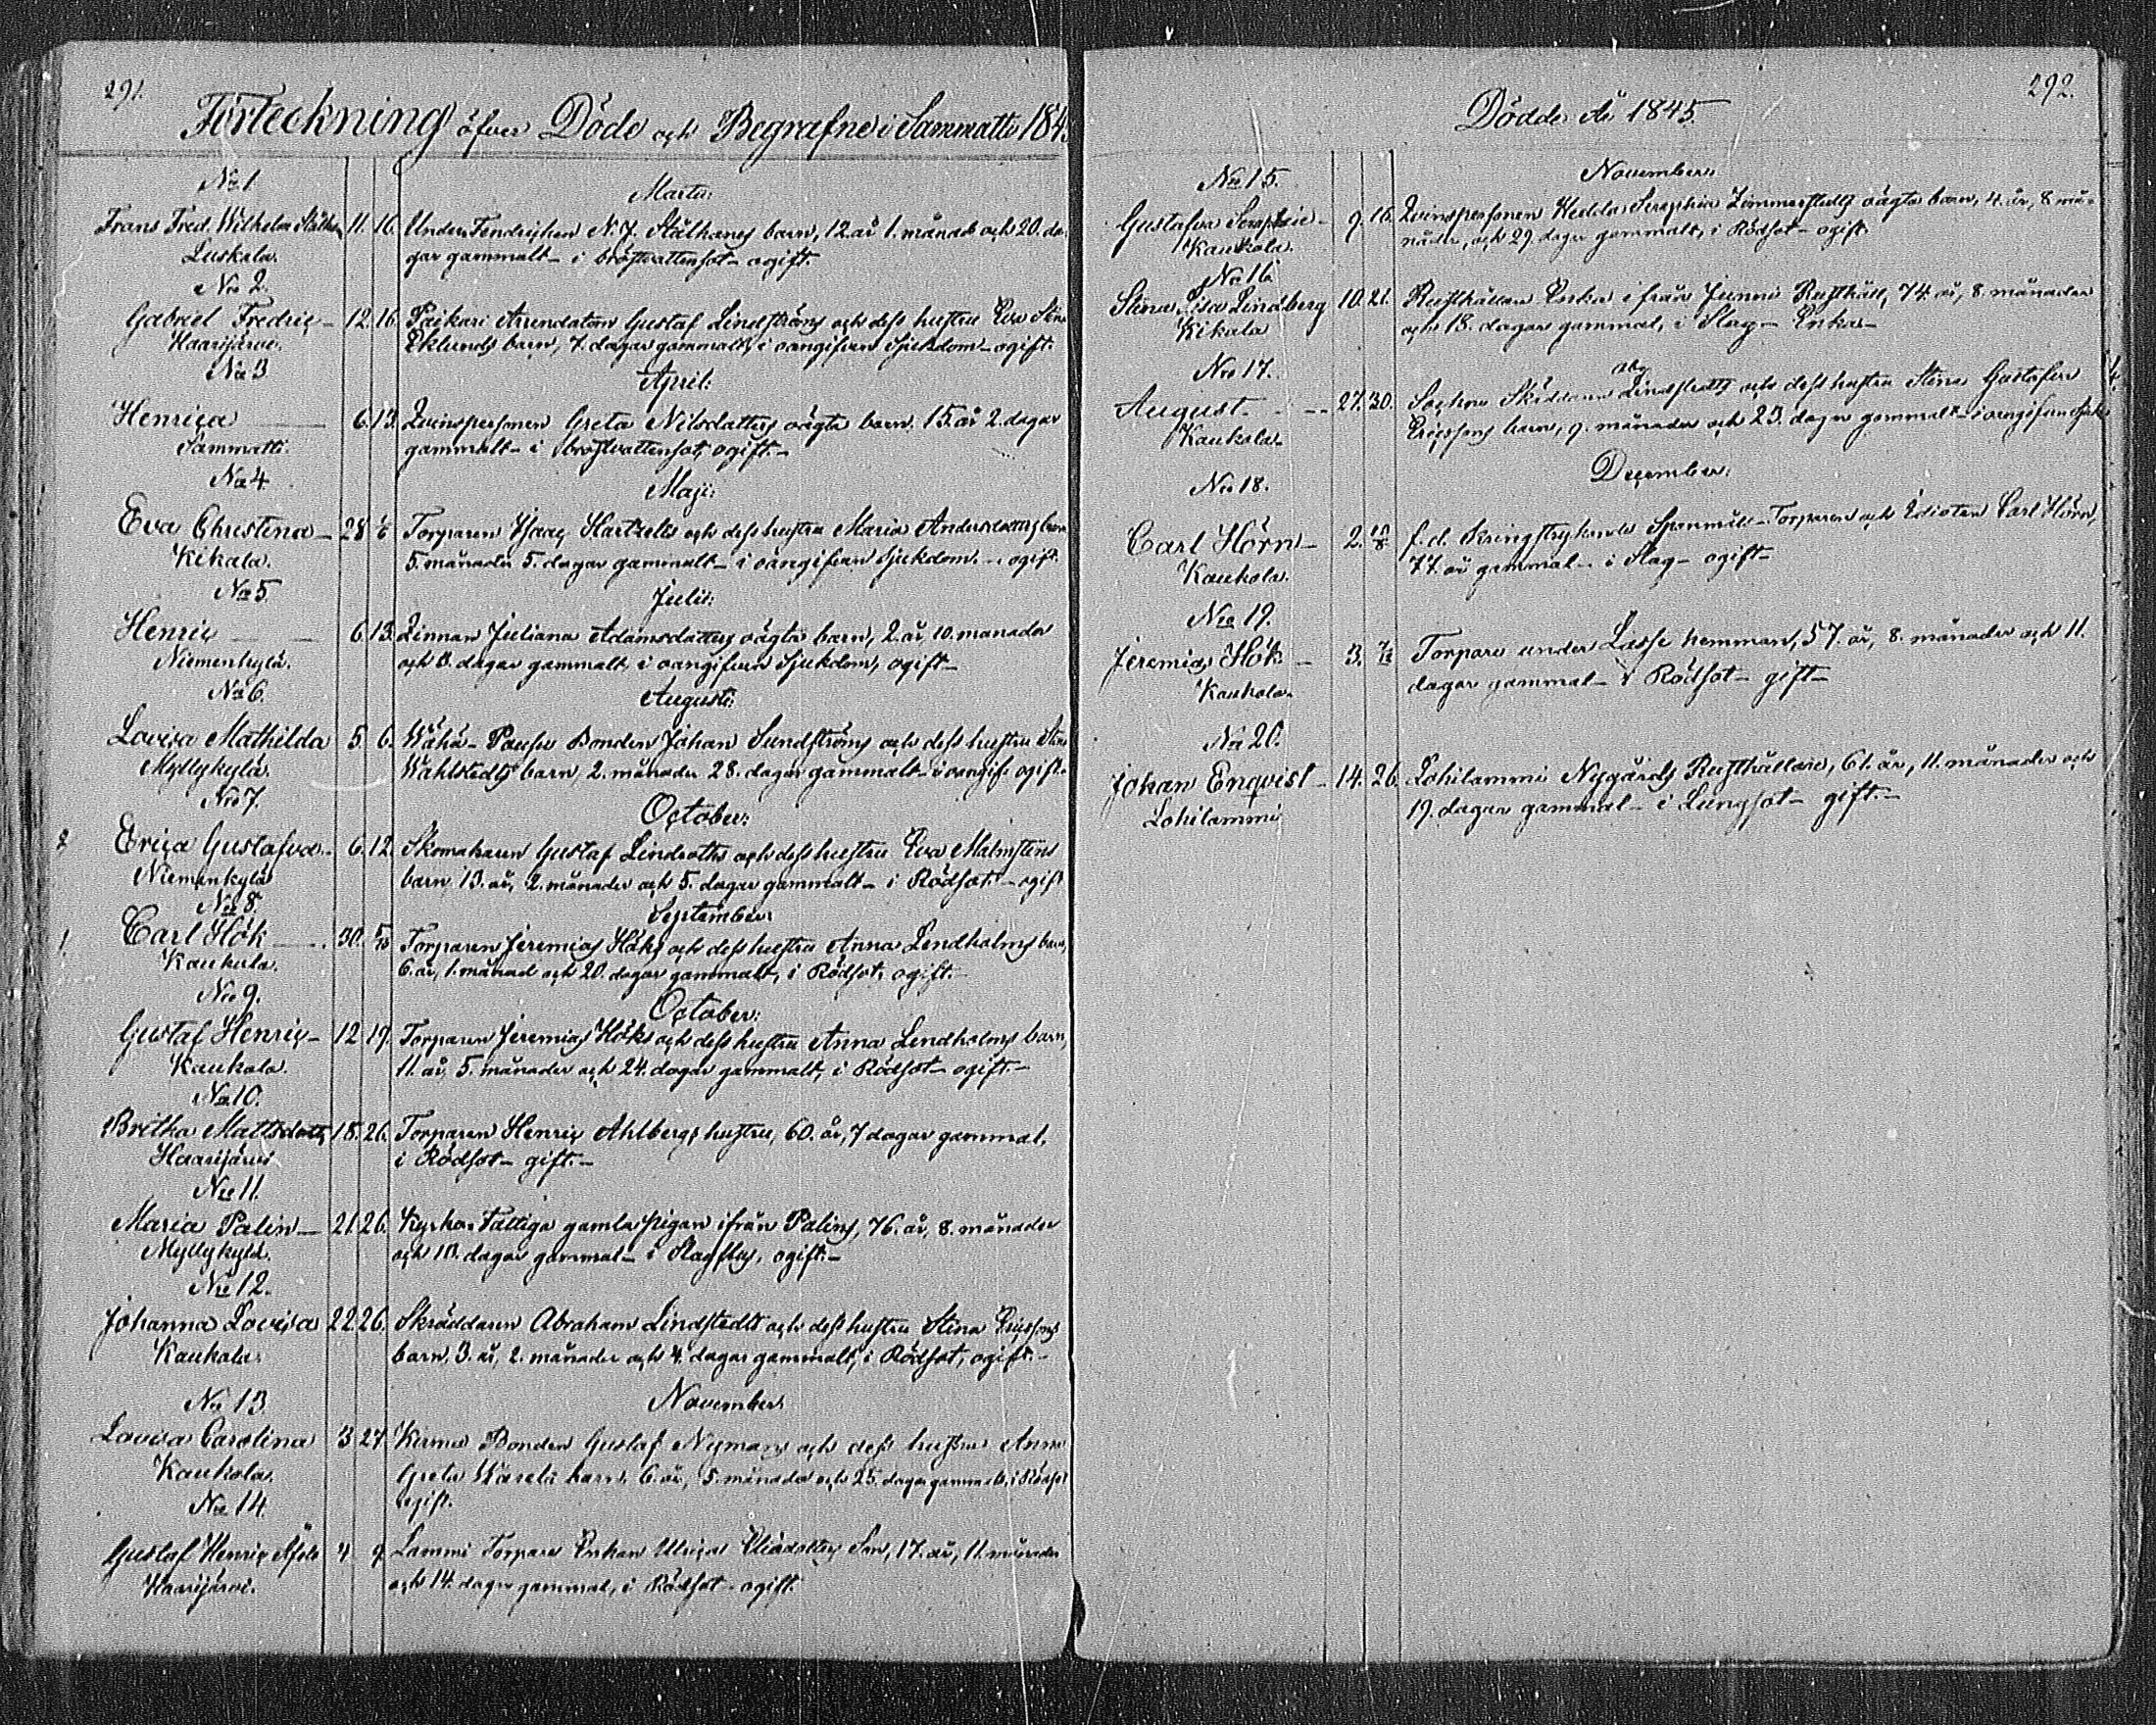 291.
Förteckning öfver Döde och Begrafne i Sammatti 1845
No 1.
Martii:
Frans Fred. Wilhelm Stålhan 11. 16. Under Fendrichen N. J. Stålhans barn, 12 år 1. månad och 20. da-
Luskala. gar gammalt - i bröstvattensot - ogift.
No 2.
Gabriel Fredric - 12. 16. Paikari Arrendatorn Gustaf Lindströms och dess hustru Eva Stina
Haarijärvi. Eklunds barn, 7. dagar gammalt, i oangifven sjukdom - ogift.
No 3
April:
Henrica 6. 13. Qvinspersonen Greta Nilsdotters oägta barn. 15. år 2. dagar
Sammatti. gammalt - i bröstvattensot, ogift. -
No 4.
Maji:
Eva Christina - 28 1/6 Torparen Isaac Hartzells och dess hustru Maria Andersdotters barn
Kikala. 5. månader 5. dagar gammalt - i oangifven Sjukdom. - ogift.
No 5.
Julii:
Henric 6. 13. Linnan Juliana Adamsdotters oägta barn, 2. år, 10. månader
Niemenkylä. och dagar gammalt, i oangifven Sjukdom, ogift -
No 6.
Augusti:
Lovisa Mathilda 5. 6. Wähä-Pausu Bonden Johan Sundströms och dess hustru Stina
Myllykylä. Wahlstedts barn, 2. månader 28. dagar gammalt - i oangif. ogift.
No 7.
October:
2 Erica Gustafva. 6. 12. Skomakaren Gustaf Lindroths och dess hustru Eva Malmstens
Niemenkylä barn, 13. år, 2. månader och 5. dagar gammalt - i Rödsot. - ogift
No 8.
September
1 Carl Hök 30. 5/10 Torparen Jeremias Höks och dess hustru Anna Lindholms barn,
Kaukola. 6. år, 1. månad och 20. dagar gammalt, i Rödsot, ogift. -
No 9.
October:
Gustaf Henric - 12 19. Torparen Jeremias Höks och dess hustru Anna Lindholms barn,
Kaukola. 11. år, 5. månader och 24. dagar gammalt, i Rödsot - ogift. -
No 10.
Britha Mattsdotter 18. 26. Torparen Henric Ahlbergs hustru, 60. år, 7 dagar gammal.
Haarijärvi i Rödsot - gift. -
No 11.
Maria Palin - 21. 26. Kyrko-Fattiga gamla pigan ifrån Palins, 76. år, 8. månader
Myllykylä. och 10. dagar gammal - i Slagfluss, ogift. -
No 12.
Johanna Lovisa 22. 26. Skräddaren Abraham Lindstedts och dess hustru Stina Ericssons
Kaukola. barn, 3. år, 2. månader och 4. dagar gammalt, i Rödsot, ogift. -
No 13.
November
Lovisa Carolina 3 27. Bonden Gustaf Nymans och dess hustru Anna
Kaukola. Greta barn, 6. år, 5. månader och 25. dagar gammalt, i Rödsot
ogift.
No 14.
Gustaf Henric 4. 9. Lammi Torpare Enkan Ulrica Eliædotters Son, 17. år, 11. månader
Haarijärvi. och 14. dagar gammal, i Rödsot - ogift.
292.
Döde År 1845.
No 15.
November:
Gustafva Seraphia - 9. 16. Qvinspersonen Hedda Seraphia Zimmerstedts oägta barn, 4. år, 8 må-
Kaukola. nader, och 29. dagar gammalt, i Rödsot - ogift.
No 16.
Stina Lisa Lindberg 10. 21. Rusthållare Enka ifrån Junni Rusthåll, 74. år, 8. månader
Kikala och 18. dagar gammal, i Slag - Enka -
No 17.
August - 27. 30. Sockne Skräddaren Abr Lindstedts och dess hustru Stina Gustafva
Kaukola. Ericssons barn, 9. månader och 23. dagar gammalt - i oangifven sjukd
December:
No 18.
Carl Hörn - 2. f. d. Kringstrykande Torparen och Idioten Carl Hörn,
Kaukola. 77. år gammal - i Slag - ogift -
No 19.
Jeremias Hök - 3. 7/12 Torpare under Lasse hemman, 57. år, 8. månader och 11.
Kaukola. dagar gammal - i Rödsot - gift -
No 20.
Johan Enqvist - 14. 26 Lohilammi Nygårds Rusthållare, 61. år, 11. månader och
Lohilammi 19. dagar gammal - i Lungsot - gift. -